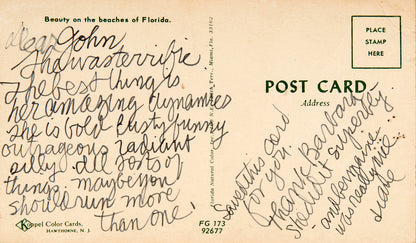 Beauty on the beaches of Florida.
Dear John
Tha was terrific
The best thing is
her amazing dynamics
she is bold lusty funny
outrageous radiant
silly. All sorts of
things. maybe you
should run more
than one.
Koppel Color Cards.
HAWTHORNE, N. J.
FG 173
92677
PLACE
STAMP
HERE
POST CARD
Address
saved this card
for you.
Thank Barbara
She did it superbly
and
was really nice